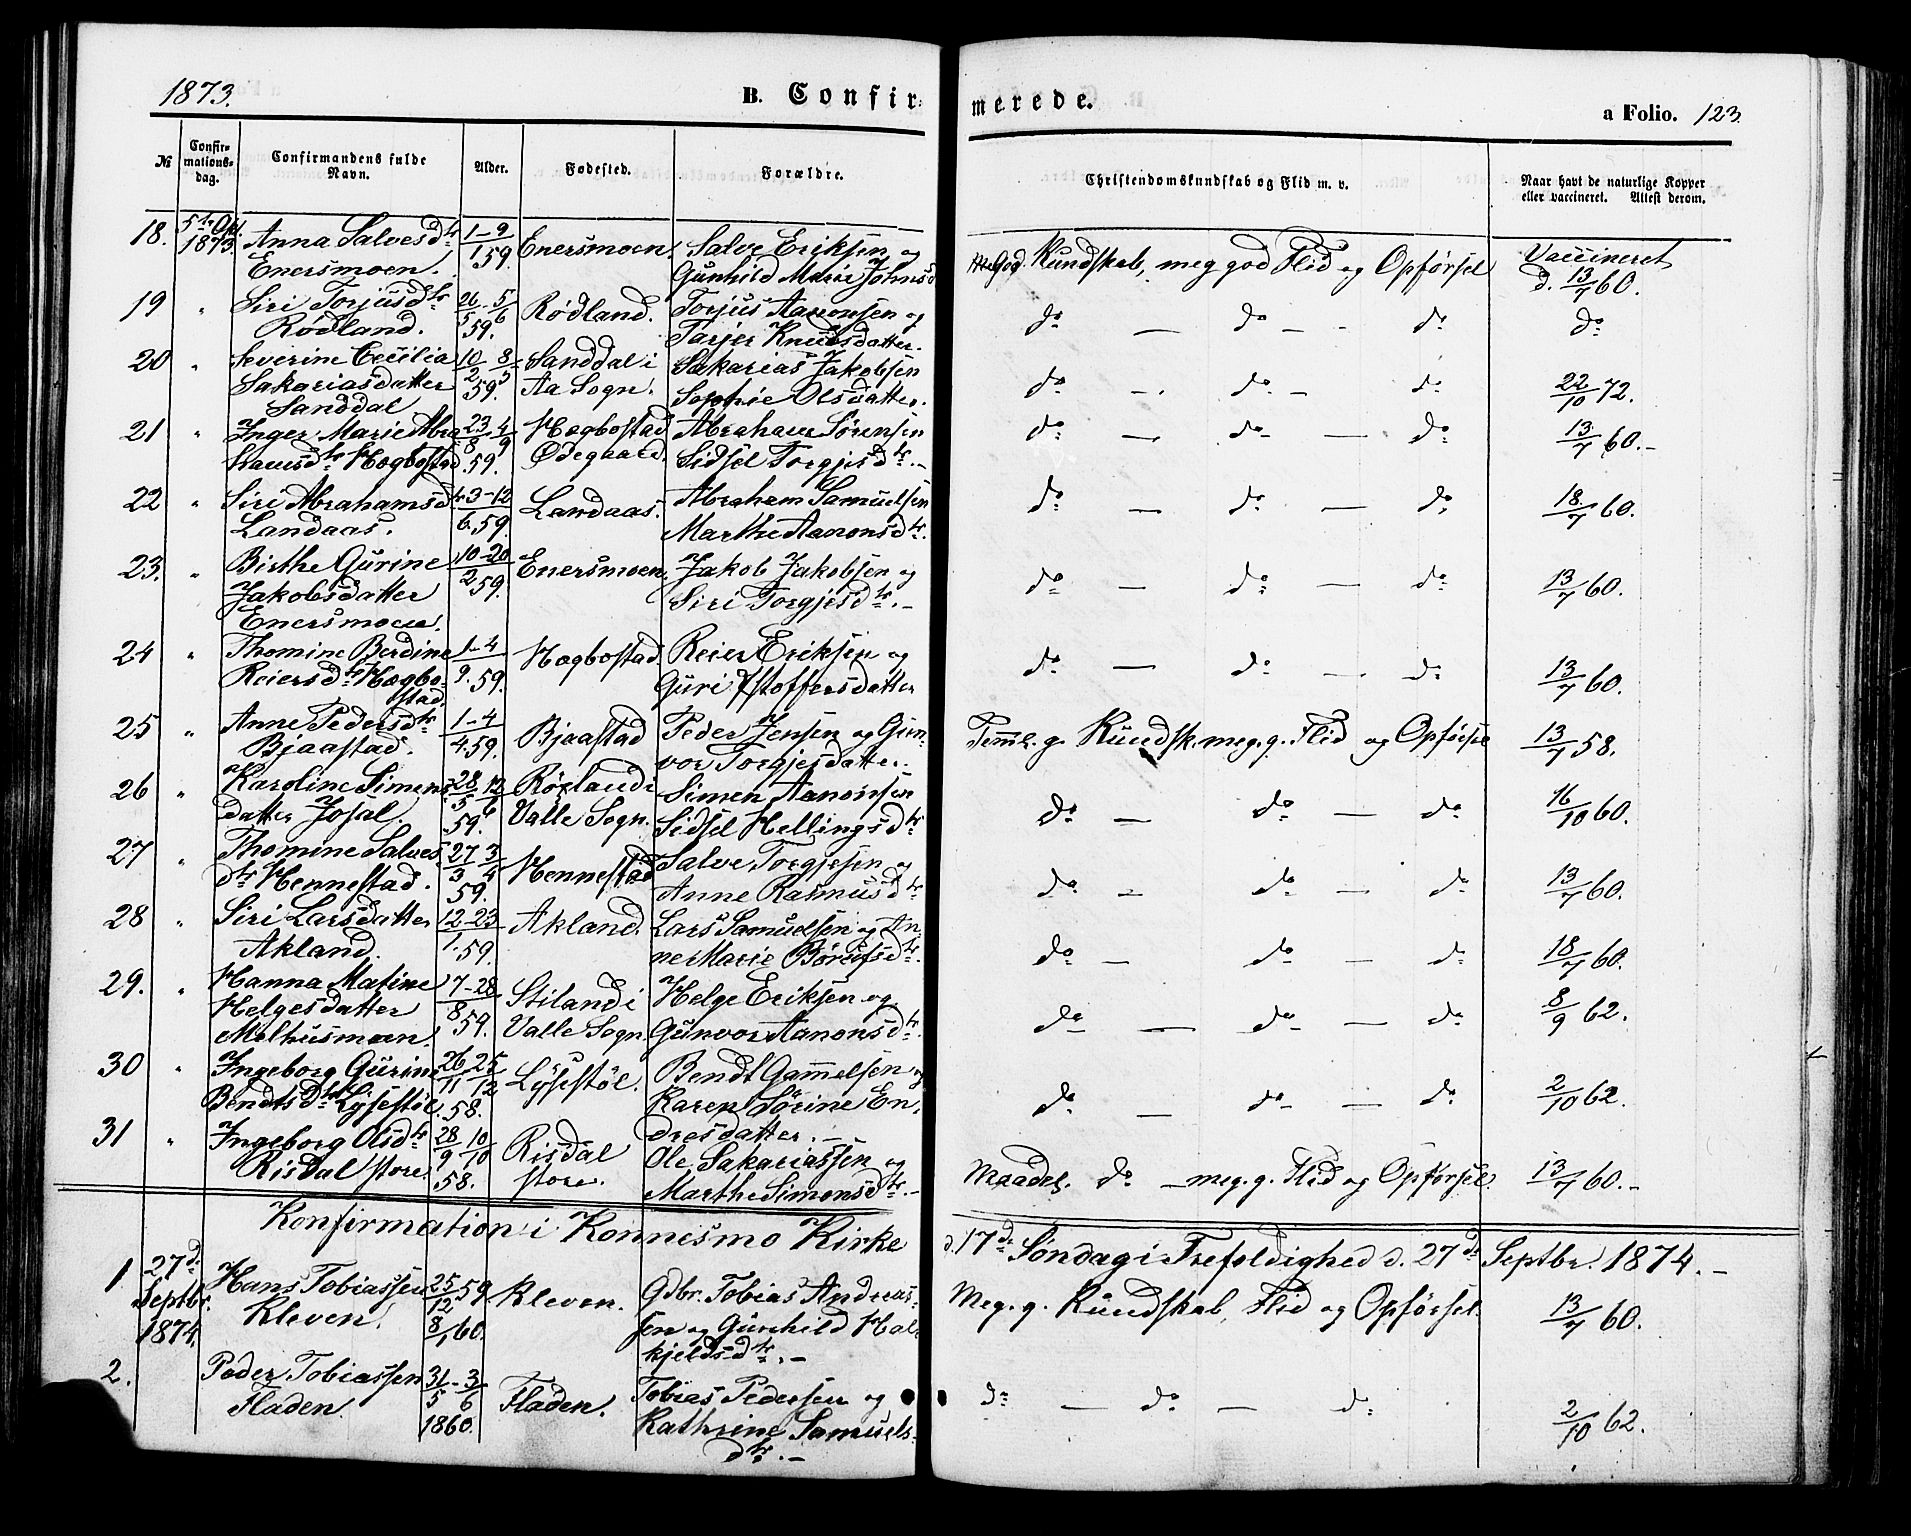 1873. B. Confirmerede. a Folio. 123.
№ Confirmationsdag. Confirmandens fulde Navn. Alder. Fødested. Forældre. Christendomskundskab og Flid m. v. Naar havt de naturlige Kopper eller vaccineret. Attest derom.
18. 5te Okt. 1873. Anna Salvesdtr 1-9 Enersmoen. Salve Eriksen og God Kundskab, meg god Flid og Opførsel Vaccineret
Enersmoen. 1.59. Gunhild Marie Johnsd d. 13/7 60.
19 " Siri Torjusdtr 26/5 - 5/6 Rødland. Torjus Aanonsen og do — do — do do
Rødland. 59. Tarjer Knudsdatter.
20 " Severine Cecilia 10/2 8/3 Sanddal i Sakarias Jakobsen do — do — do 22/10 72.
Sakariasdatter 59. Aa Sogn. Sophie Olsdatter.
Sanddal
21 " Inger Marie Abra 23/8 4/9 Hægbostad Abraham Sørensen do — do — do 13/7 60.-
hamsdtr Hægbostad 59. Ødegaard. Sidsel Torgjesdtr.-
22 " Siri Abrahamsd 3-12 Landaas. Abraham Samuelsen do — do — do 18/7 60.
Landaas. 6.59. Marthe Aanonsdtr.
23. " Birthe Gurine 10-20 Enersmoen. Jakob Jakobsen og do — do — do 13/7 60.
Jakobsdatter 2 59. Siri Torgjesdtr.-
Enersmoen.
24 " Thomine Berdine 1-4 Hægbostad Reier Eriksen og do — do — do 13/7 60.
Reiersdtr Hægbo- 9.59. Guri Xstoffersdatter
stad.
25 " Anne Pedersdtr 1-4 Bjaastad Peder Jensen og Gun- Teml. g. Kundsk. meg. g. Flid og Opførsel 13/7 58.
Bjaastad. 4.59. vor Torgjesdatter.
26 " Karoline Simens 28/5 12/6 Røiland i Simen Aanonsen do — do — do 16/10 60.
datter Josal. 59. Valle Sogn. Sidsel Hellingsdtr
27 " Thomine Salves 27/3 3/4 Hennestad Salve Torgjesen og do — do — do 13/7 60.
dtr Hennestad. 59. Anne Rasmusdtr
28 " Siri Larsdatter 12-23 Akland. Lars Samuelsen og An- do — do — do 18/7 60.
Akland. 1.59. ne Marie Børufsdtr.
29. " Hanna Matine 7-28 Stiland i Helge Eriksen og do — do — do 8/9 62.
Helgesdatter 8 59. Valle Sogn Gunvor Aanonsdtr.
Melhusmoen.
30 " Ingeborg Gurine 26/11 25/12 Lysestøl. Bendt Gammelsen og do — do — do 2/10 62.
Bendtsdtr Lysestøl. 58. Karen Sørine En-
dresdatter.-
31 " Ingeborg Olsdtr 28/9 10/10 Risdal Ole Sakariassen og Maadel. do — meg. g. Flid og Opførsel. 13/7 60.-
Risdal store. 58. store. Marthe Simonsdtr.-
Konfirmation i Konnesmo Kirke d. 17de Søndag i Trefoldighed d. 27de Septbr. 1874.-
1. 27de Hans Tobiassen 25/12 59 Kleven. Gdbr. Tobias Andreas- Meg. g. Kundskab, Flid og Opførsel. 13/7 60.
Septbr. Kleven. 8/1 60. sen og Gunhild Hal-
1874. kjeldsdtr.-
2. Peder Tobiassen 31/5 - 3/6 Fladen. Tobias Pedersen og do — do — do 2/10 62.
Fladen. 1860. Kathrine Samuels-
dtr.-